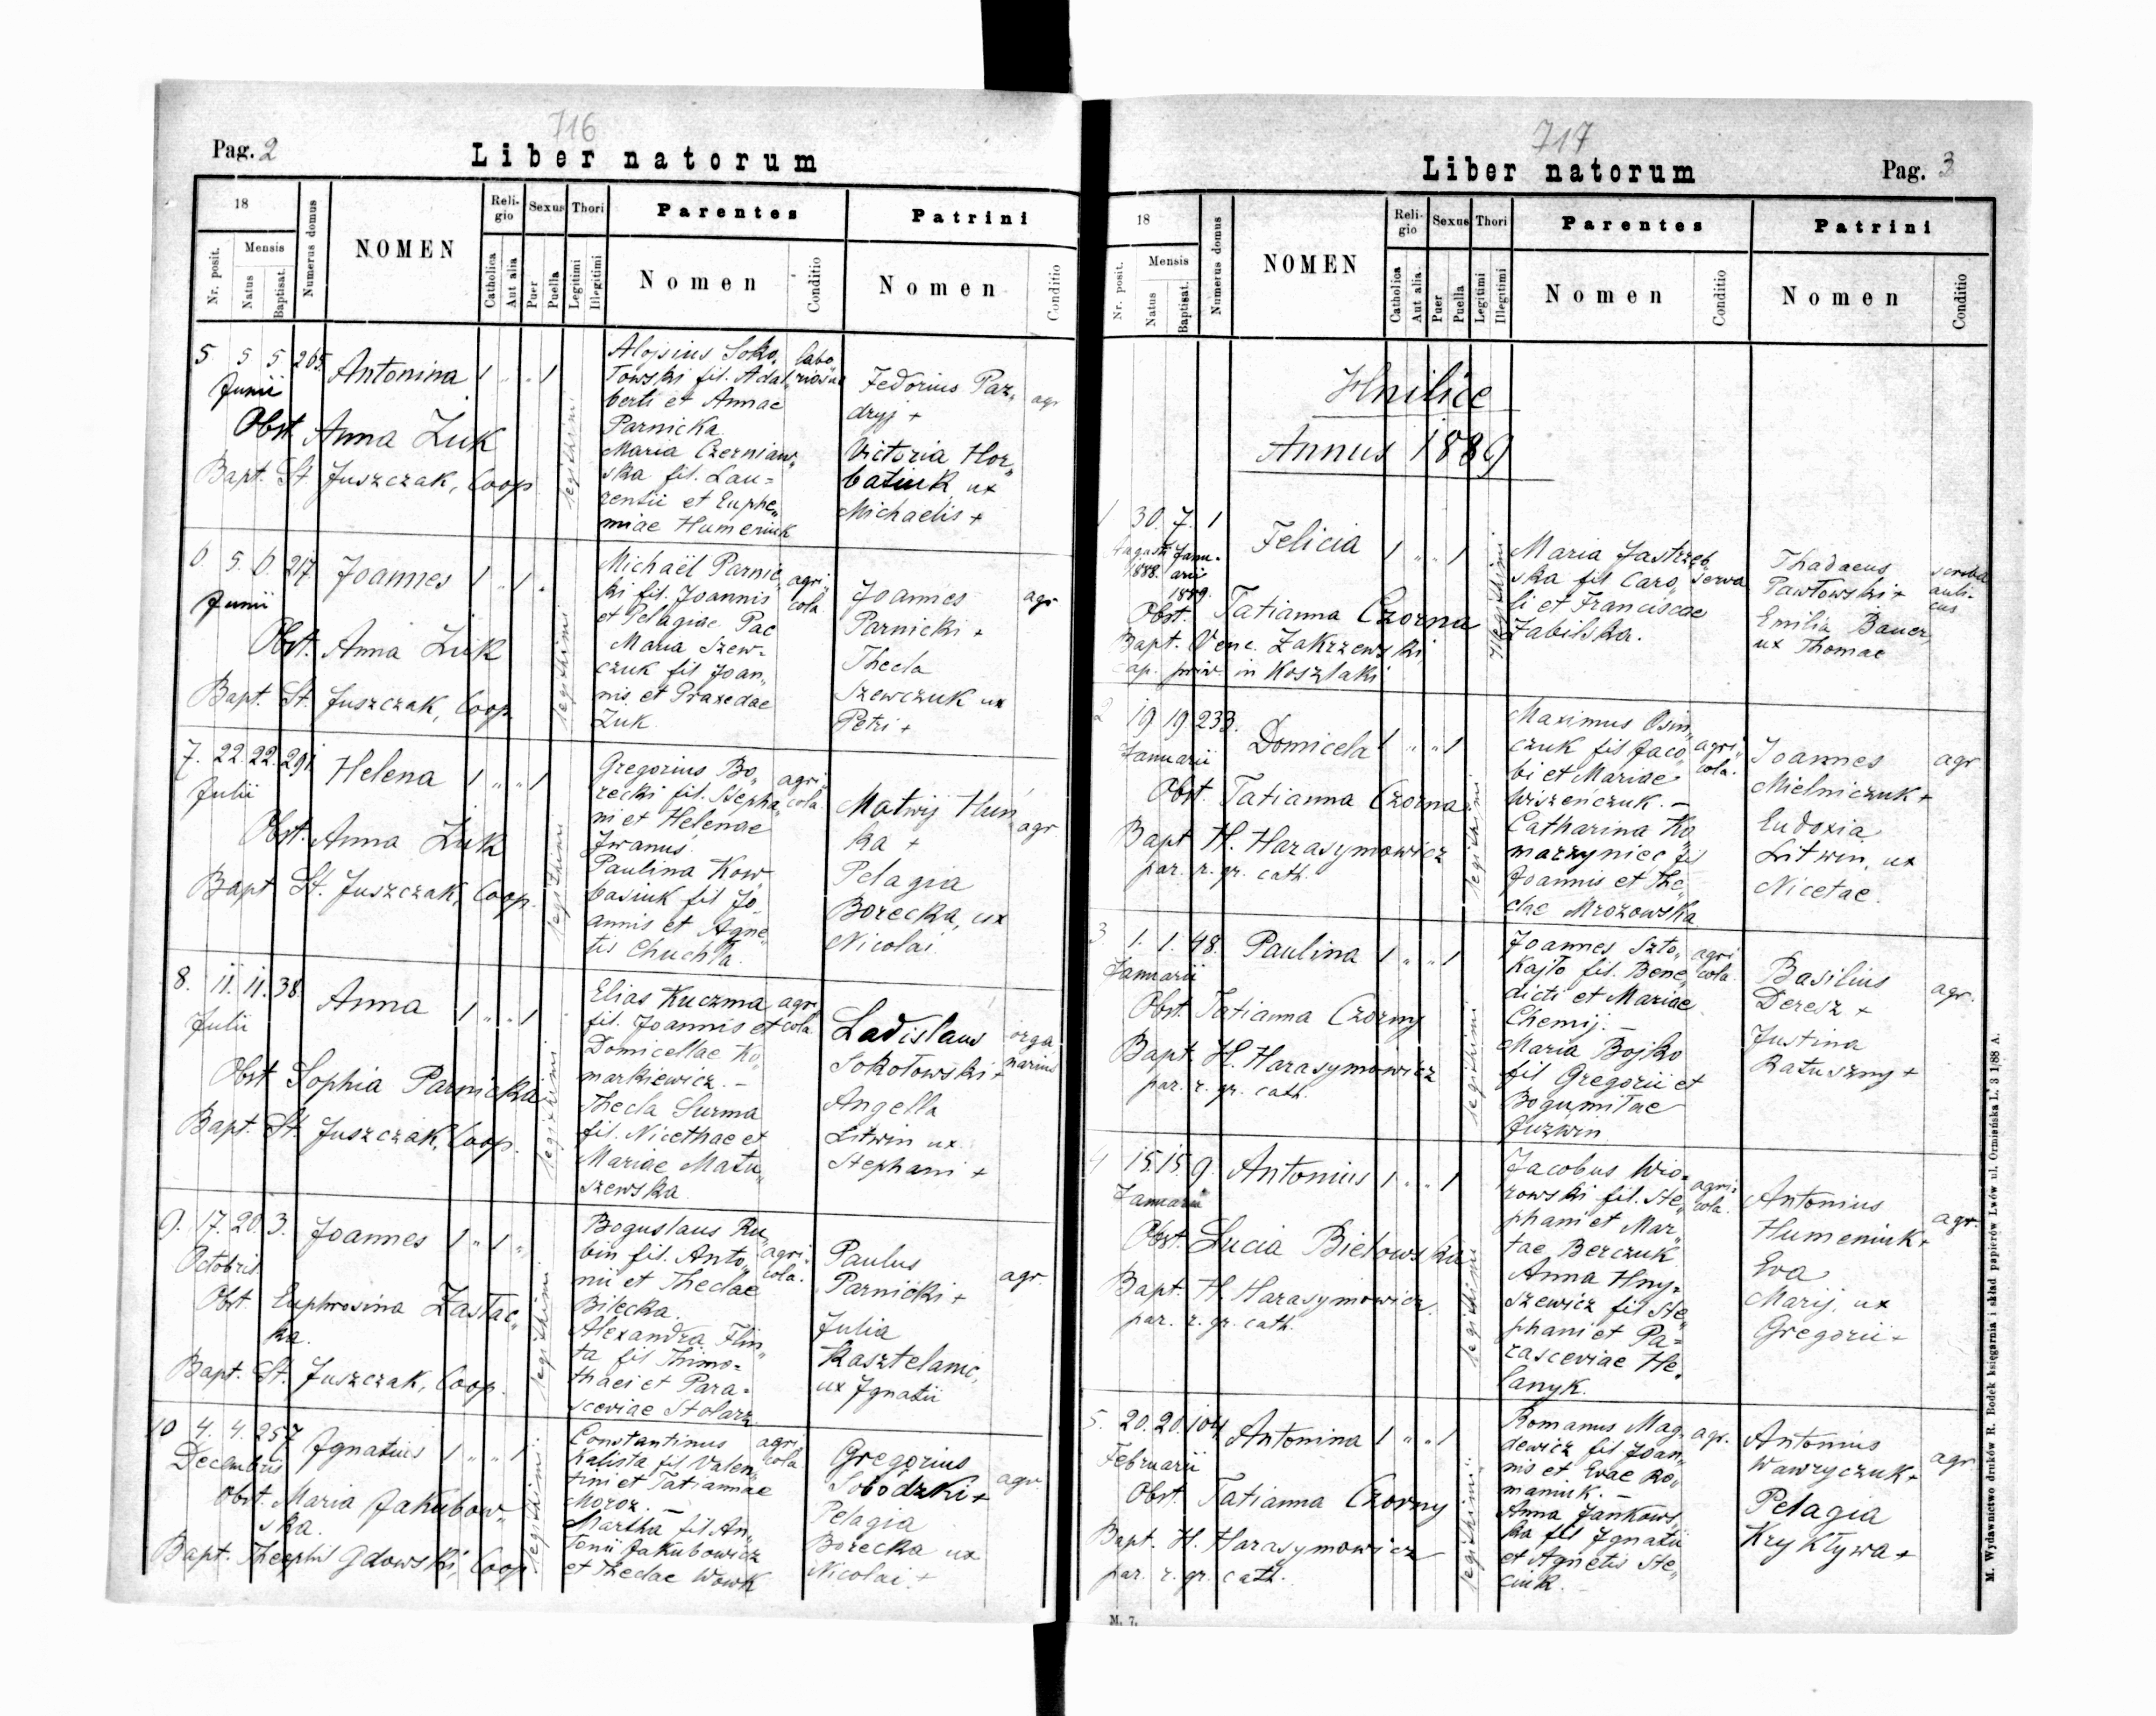 716
Pag. 2
Liber natorum
18
Nr. posit.
Mensis
Natus
Baptisat.
Numerus domus
NOMEN
Religio
Catholica
Aut alia
Sexus
Puer
Puella
Thori
Legitimi
Illegitimi
Parentes
Nomen
Conditio
Patrini
Nomen
Conditio
5 5 5 265. Antonina 1 „ „ 1
Junii
Obst Anna Żuk
Bapt. St. Juszczak, Coop
legithimi
Aloisius Soko„
łowski fil. Adal
berti et Annae
Parnicka
Maria Czerniaw„
ska fil. Lau=
rentii et Euphe„
miae Humeniuk
labo
riosus
Fedorius Paz„
dryj +
Victoria Hor„
batiuk ux
Michaelis +
agr
6 5. 6. 217. Joannes 1 „ 1 „
Junii
Obst. Anna Żuk
Bapt. St. Juszczak, Coop
legithimi
Michaël Parnic„
ki fil. Joannis
et Pelagiae Pac
Maria Szew-
czuk fil Joan„
nis et Praxedae
Żuk
agri„
cola
Joannes
Parnicki +
Thecla
Szewczuk ux
Petri +
agr
7. 22. 22. 291 Helena 1 „ „ 1
Julii
Obst. Anna Żuk
Bapt St. Juszczak, Coop.
legithimi
Gregorius Bo„
recki fil. Stepha„
ni et Helenae
Iwanus.
Paulina Kow
basiuk fil Jo
annis et Agne„
tis Chuchła.
agri„
cola.
Matwij Huń
ka +
Pelagia
Borecka, ux
Nicolai
agr
8. 11. 11. 38. Anna 1 „ „ 1
Julii
Obst Sophia Parnicka
Bapt. St. Juszczak, Coop.
legithimi
Elias Kuczma
fil. Joannis et
Domicellae Ko
markiewicz. -
Thecla Surma
fil. Nicethae et
Mariae Matu„
szewska
agri
cola
Ladislaus
Sokołowski +
Angella
Litwin ux
Stephani +
orga
narius
9. 17. 20. 3. Joannes 1 „ 1 „
Octobris
Obst. Euphrosina Zastac„
ka.
Bapt. St. Juszczak, Coop.
legithimi
Boguslaus Ru„
bin fil. Anto„
nii et Theclae
Bilecka.
Alexandra Flin„
ta fil Thimo=
thaei et Para=
sceviae Stolarz
agri„
cola.
Paulus
Parnicki +
Julia
Kasztelanic,
ux Ignatii
agr.
10 4. 4. 257 Ignatius 1 „ „ 1
Decembris
Obst. Maria Jakubow„
ska.
Bapt. Theophil Gdowski, Coop
legithimi
Constantinus
Kalista fil Valen„
tini et Tatiannae
Moroz. -
Martha fil An„
tonii Jakubowicz
et Theclae Wowk
agri
cola
Gregorius
Sobódzki +
Pelagia
Borecka ux
Nicolai. +
agr.
717
Liber natorum
Pag. 3
18
Nr. posit.
Mensis
Natus
Baptisat.
Numerus domus
NOMEN
Religio
Catholica
Aut alia.
Sexus
Puer
Puella
Thori
Legitimi
Illegitimi
Parentes
Nomen
Conditio
Patrini
Nomen
Conditio
Hnilice
Annus 1889
1 30. 7. 1 Felicia 1 „ „ 1
Augusti Janu-
1888. arii
1889.
Obst. Tatianna Czorna
Bapt. Venc. Zakrzewski
cap. priv. in Koszlaki
Illegithimi
Maria Jastrzęb
ska fil Caro„
li et Franciscae
Zabilska.
serva
Thadaeus
Pawłowski +
Emilia Bauer,
ux Thomae
scriba
auli-
cus
2 19 19 233. Domicela 1 „ „ 1
Januarii
Obst. Tatianna Czorna
Bapt H. Harasymowicz
par. r. gr. cath.
legithimi
Maximus Osin„
czuk fil Jaco
bi et Mariae
Wiszeńczuk. -
Catharina Ko
marzyniec fil
Joannis et The„
clae Mrozowska
agri„
cola.
Joannes
Mielniczuk +
Eudoxia
Litwin, ux
Nicetae.
agr
3 1. 1. 48. Paulina 1 „ „ 1
Januarii
Obst. Tatianna Czorny
Bapt. H. Harasymowicz
par. r. gr. cath.
legithimi
Joannes Szto„
kajło fil. Bene„
dicti et Mariae
Chemij. -
Maria Bojko
fil Gregorii et
Bogumiłae
Juzwin
agri
cola.
Basilius
Deresz +
Justina
Ratuszny +
agr.
4 15. 15. 9. Antonius 1 „ „ 1
Januarii
Obst. Lucia Bielowska
Bapt. H. Harasymowicz.
par. r. gr. cath.
legithimi
Jacobus Wio=
rowski fil. Ste„
phani et Mar„
tae Berczuk
Anna Hny=
szewicz fil Ste„
phani et Pa=
rasceviae He„
lanyk.
agri=
cola.
Antonius
Humeniuk +
Eva
Marij, ux
Gregorii +
agr.
5. 20. 20. 104 Antonina 1 „ „ 1
Februarii
Obst. Tatianna Czorny
Bapt. H. Harasymowicz
par. r. gr. cath.
legithimi
Romanus Mag„
dewicz fil Joan„
nis et Evae Ro„
maniuk. -
Anna Jankows„
ka fil Ignatii
et Agnetis Ste„
ciuk. -
agr.
Antonius
Wawryczuk +
Pelagia
Krykływa +
agr
M. 7.
M. Wydawnictwo druków R. Bodek księgarnia i skład papierów Lwów ul. Ormieńska L. 3 1/88 A.